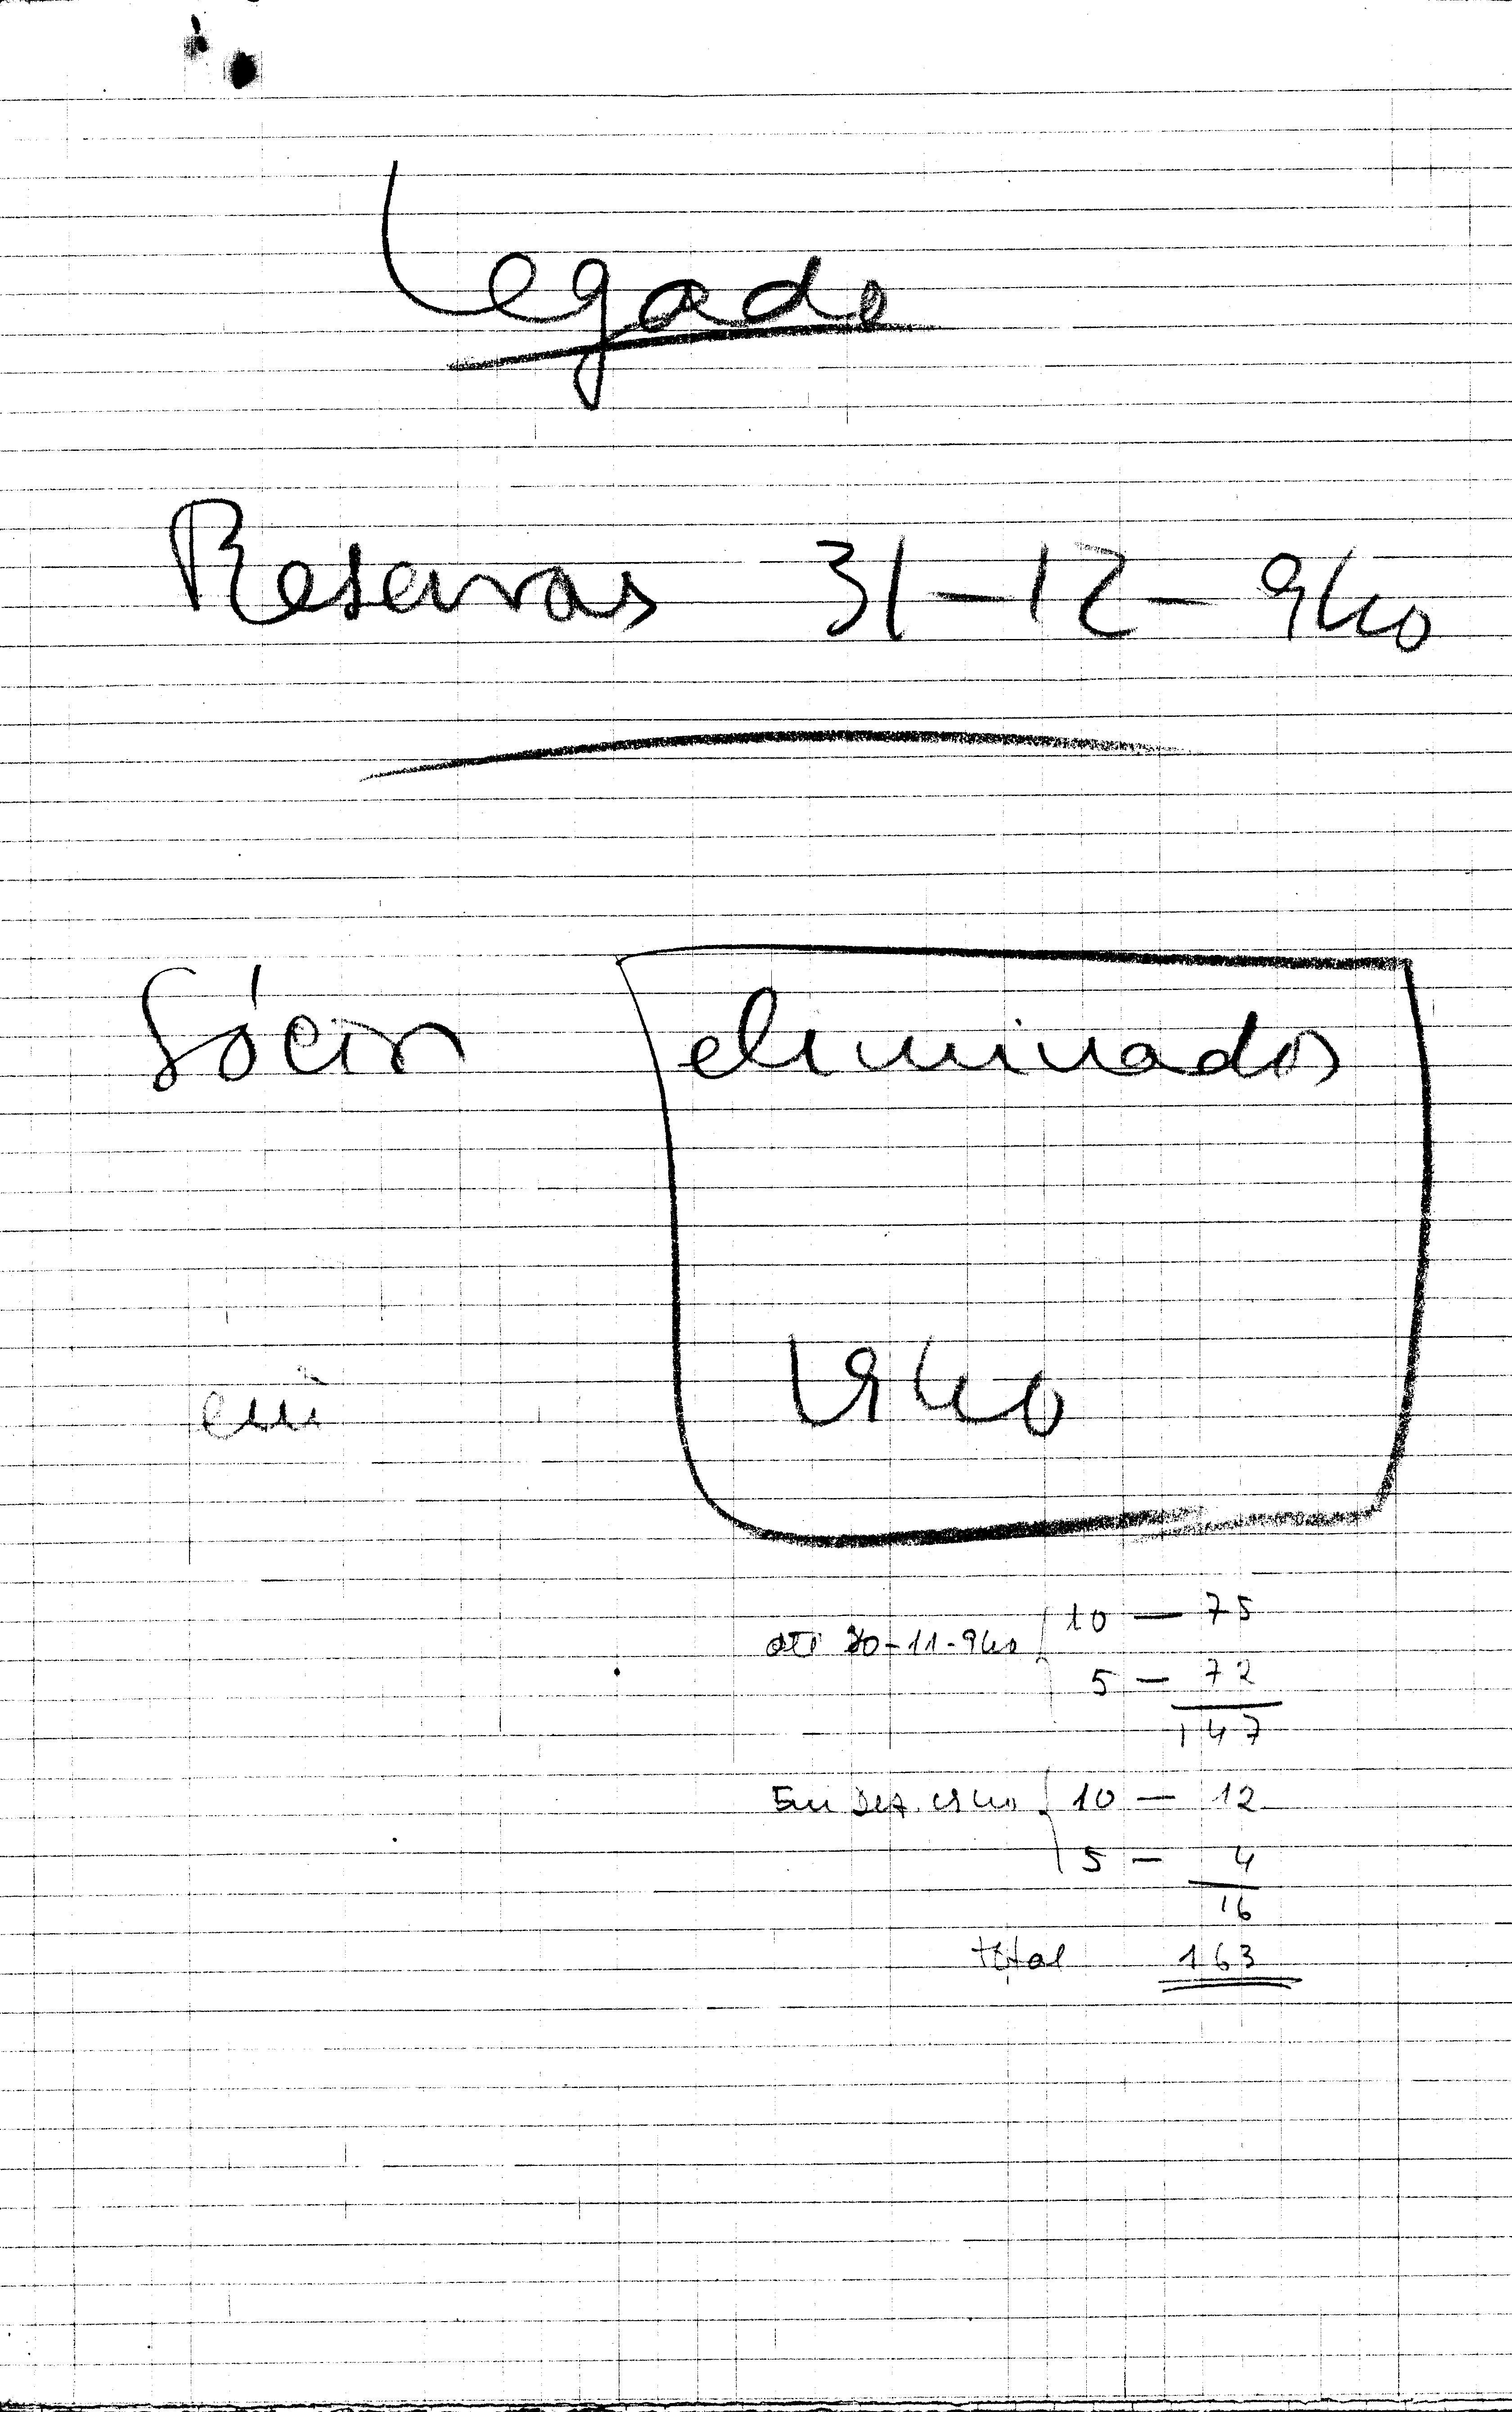 Legado
Reservas 31-12-940
Sócios eliminados
em 1940
até 30-11-940 10 — 75
5 — 72
147
Em Dez. 1940 10 — 12
5 — 4
16
total 163